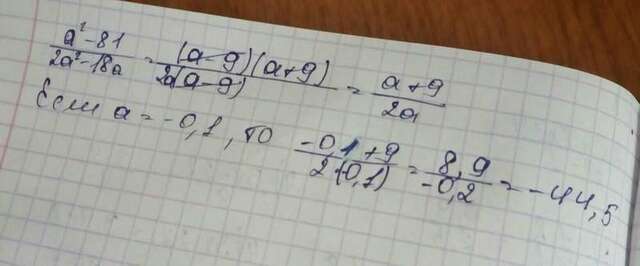 a²-81/2a²-18a = (a-9)(a+9)/2a(a-9) = a+9/2a
Если a = -0,1, то -0,1+9/2(-0,1) = 8,9/-0,2 = -44,5